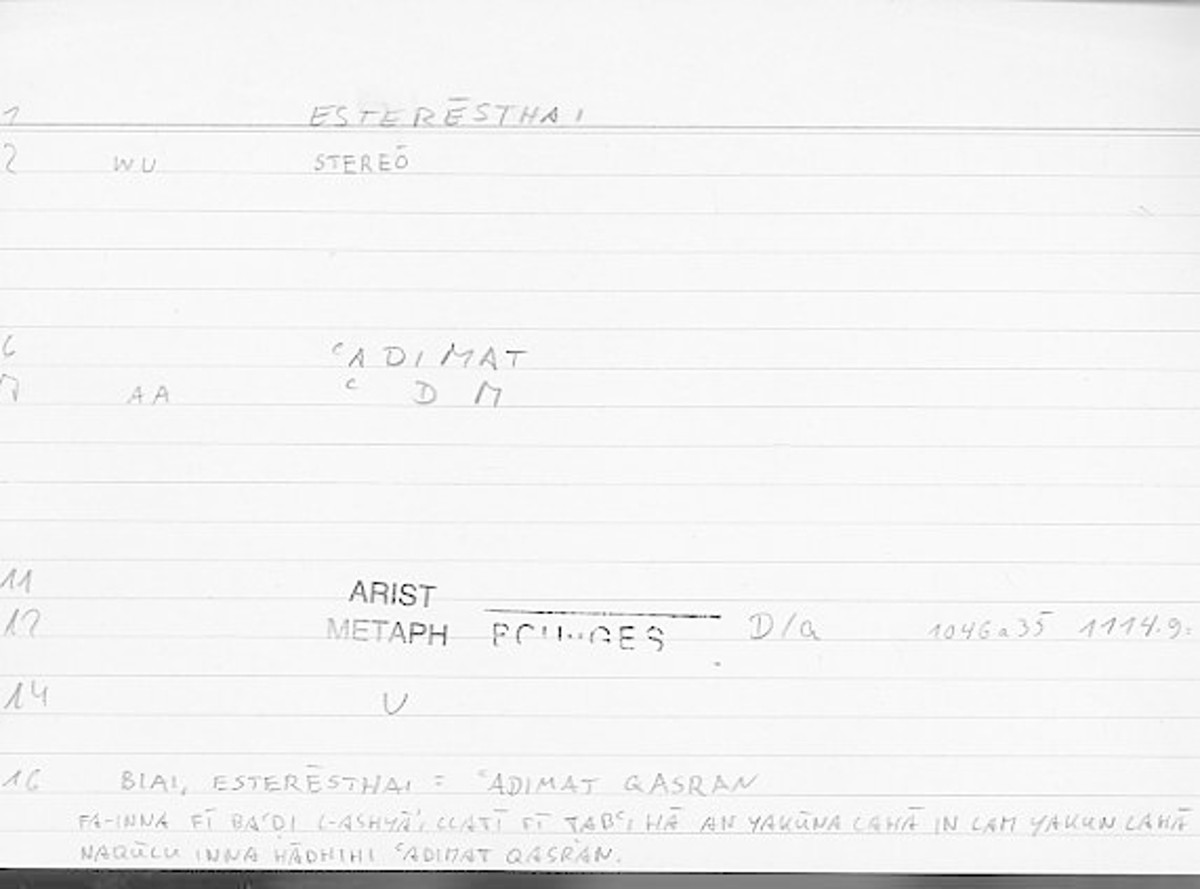 1 ESTERĒSTHAI
2 WU STEREŌ
6 ʿADIMAT
7 AA ʿ D M
11 ARIST
12 METAPH BOUYGES D/a 1046a35 1114.9:
14 U
16 BIAI, ESTERĒSTHAI = ʿADIMAT QASRAN
FA-INNA FĪ BAʿDI L-ASHYĀʾI LLATĪ FĪ TABʿIHĀ AN YAKŪNA LAHĀ IN LAM YAKUN LAHĀ
NAQŪLU INNA HĀDHIHI ʿADIMAT QASRAN.